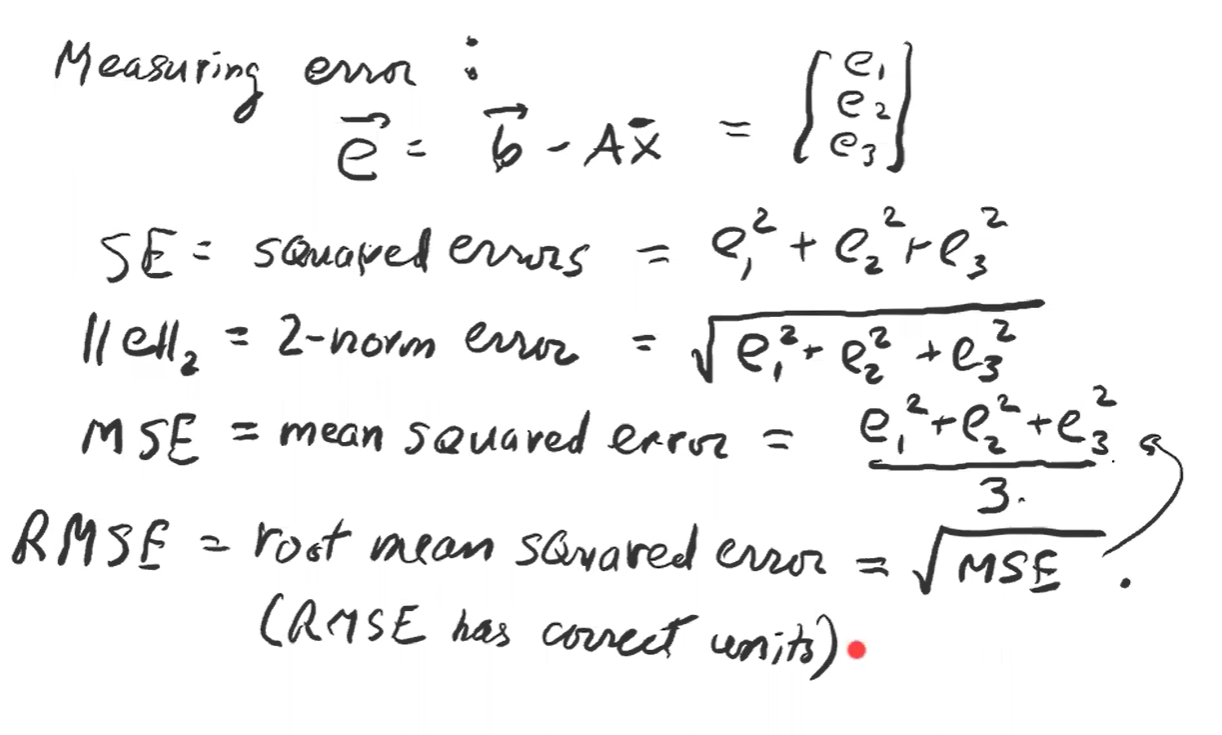 Measuring error :
e⃗ = b⃗ - Ax̄ = [e₁ e₂ e₃]
SE = squared errors = e₁² + e₂² + e₃²
||e||₂ = 2-norm error = √(e₁² + e₂² + e₃²)
MSE = mean squared error = (e₁² + e₂² + e₃²)/3.
RMSE = root mean squared error = √MSE .
(RMSE has correct units)